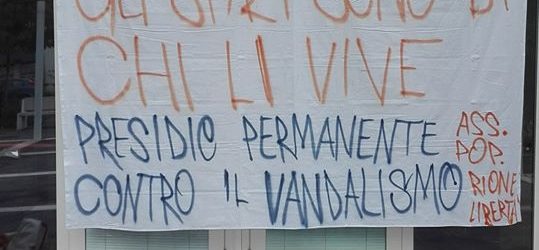 GLI SPAZI SONO DI
CHI LI VIVE
PRESIDIO PERMANENTE
CONTRO IL VANDALISMO
ASS.
POP.
RIONE
LIBERTÀ